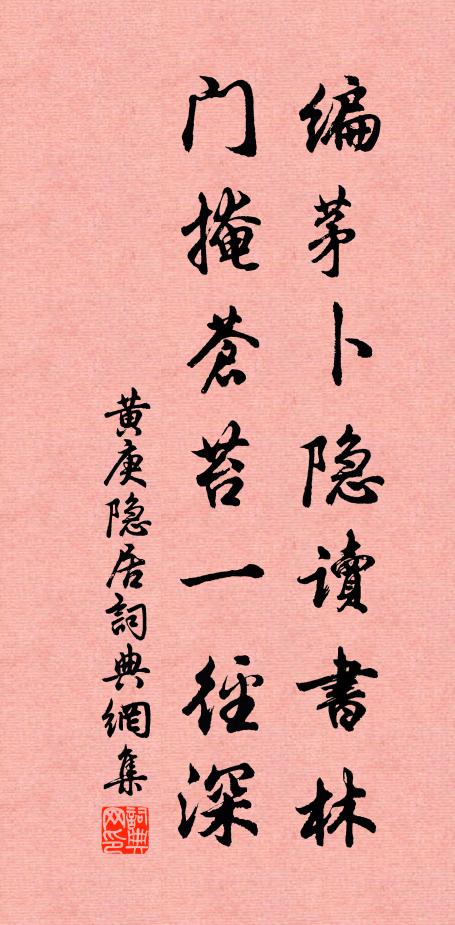 编茅卜隐读書林
门掩苍苔一径深
黄庚隐居詞典網集
詞典网印